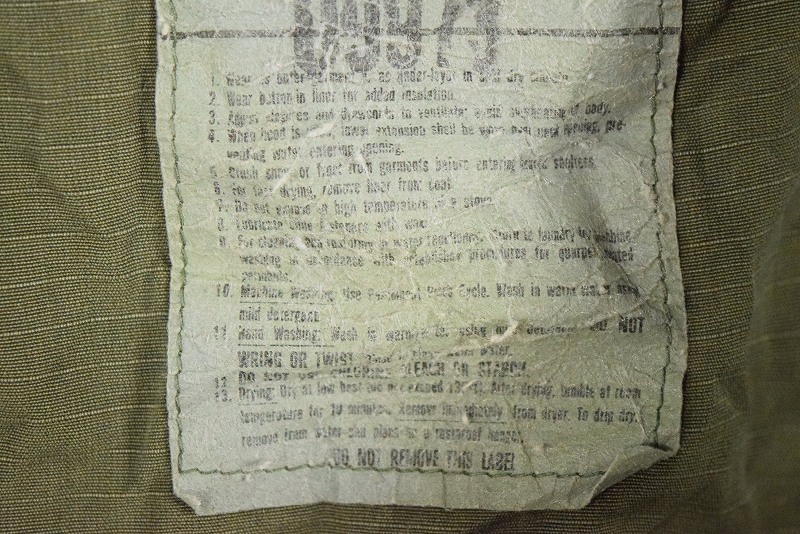 1. Wear as outer garment as under-layer in cold dry
2. Wear button in liner for added insulation.
3. closures and to ventilate avoid overheating of body.
4. When hood is lower extension shall be worn pre-
venting water entering opening.
5. Brush snow or frost from garments before entering heated shelters.
6. For fast drying, remove liner from coat.
7. Do not expose to high temperature of a stove.
8. Lubricate slide fasteners with wax.
9. For cleaning and to laundry for
washing in accordance with procedures for
garments.
10. Machine Washing: Use Permanent Press Cycle. Wash in warm water using
mild detergent.
11. Hand Washing: Wash in warm water using mild detergent. DO NOT
WRING OR TWIST. water.
12. DO NOT USE CHLORINE BLEACH OR STARCH.
13. Drying: Dry at low heat (do not exceed After drying, tumble at room
temperature for 10 minutes. Remove immediately from dryer. To drip dry,
remove from water and place on a rustproof hanger.
DO NOT REMOVE THIS LABEL